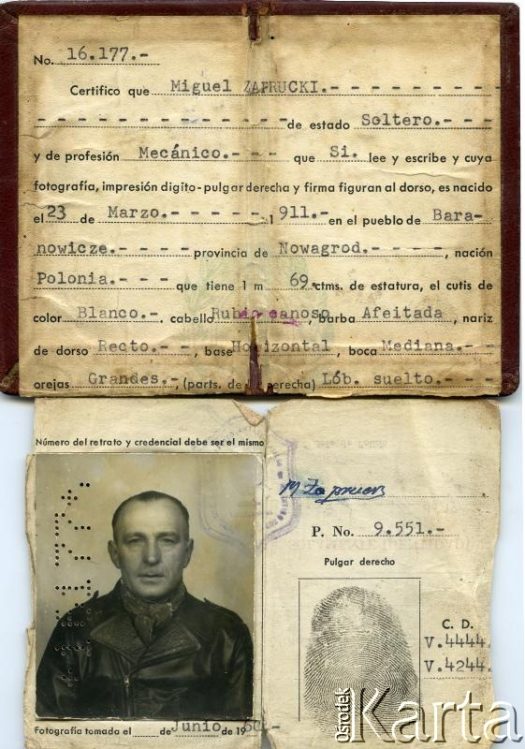 No. 16.177.-
Certifico que Miguel ZAPRUCKI.- - - - - - - - -
- - - - - - - - - - - - - - de estado Soltero.- - -
y de profesión Mecánico.- - - que Si. lee y escribe y cuya
fotografía, impresión digito-pulgar derecha y firma figuran al dorso, es nacido
el 23 de Marzo.- - - - - - 1 911.- en el pueblo de Bara-
nowicze.- - - - - provincia de Nowagrod.- - - -, nación
Polonia.- - - que tiene 1 m 69 ctms. de estatura, el cutis de
color Blanco.-. cabello canoso, barba Afeitada, nariz
de dorso Recto.- -, base Horizontal, boca Mediana.- -
orejas Grandes.-, (parts. de derecha) Lób. suelto.- - -
Número del retrato y credencial debe ser el mismo
P. No. 9.551.-
Pulgar derecho
C. D.
V.4444.
V.4244.
Fotografía tomada el de Junio, de 19 60.-
Ośrodek Karta